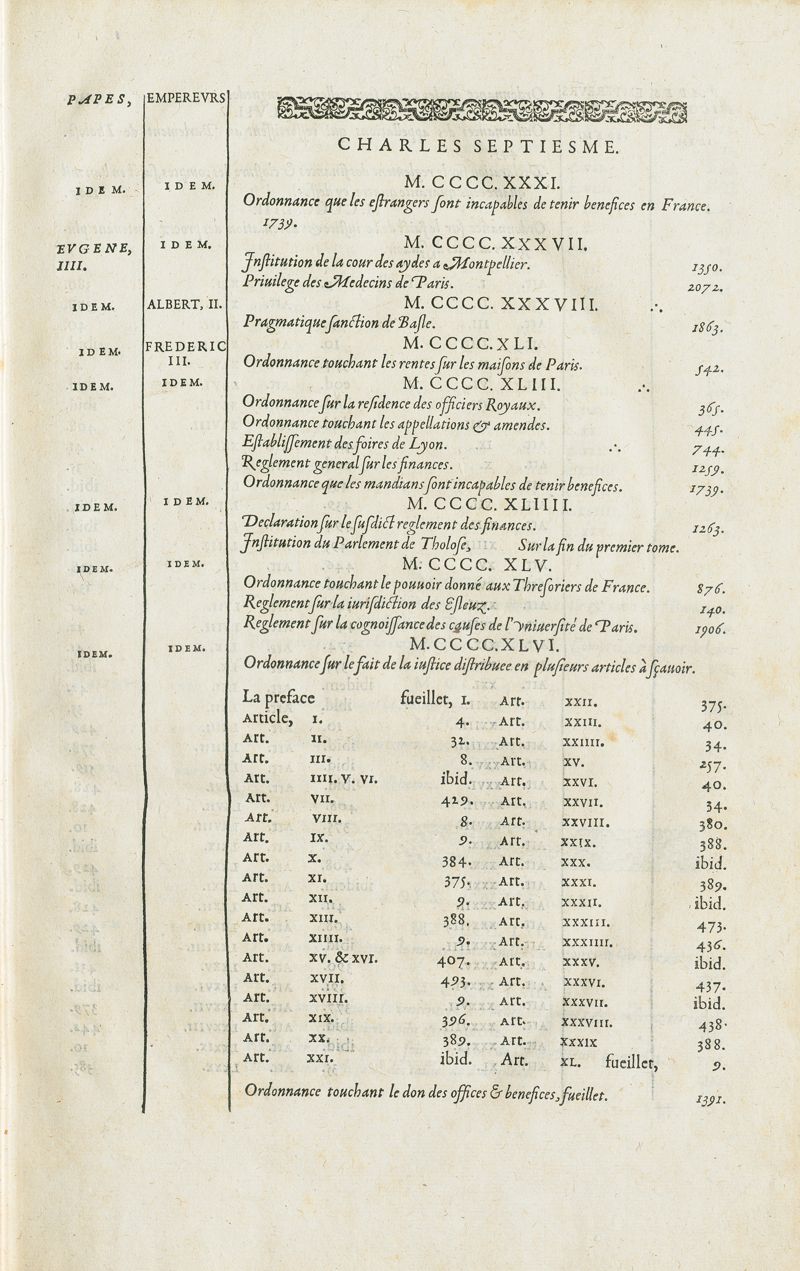 PAPES, EMPEREVRS
CHARLES SEPTIESME.
IDEM. IDEM. M. CCCC. XXXI.
Ordonnance que les eſtrangers ſont incapables de tenir benefices en France.
1739.
EVGENE, IIII. IDEM. M. CCCC. XXXVII.
Inſtitution de la cour des aydes a Montpellier. 1350.
Priuilege des Medecins de Paris. 2072.
IDEM. ALBERT, II. M. CCCC. XXXVIII. ∴
Pragmatique ſanction de Baſle. 1863.
IDEM. FREDERIC III. M. CCCC. XLI.
Ordonnance touchant les rentes ſur les maiſons de Paris. 542.
IDEM. IDEM. M. CCCC. XLIII. ∴
Ordonnance ſur la reſidence des officiers Royaux. 365.
Ordonnance touchant les appellations & amendes. 445.
Eſtabliſſement des foires de Lyon. ∴ 744.
Reglement general ſur les finances. 1259.
Ordonnance que les mandians ſont incapables de tenir benefices. 1739.
IDEM. IDEM. M. CCCC. XLIIII.
Declaration ſur le ſuſdict reglement des finances. 1263.
Inſtitution du Parlement de Tholoſe, Sur la fin du premier tome.
IDEM. IDEM. M. CCCC. XLV.
Ordonnance touchant le pouuoir donné aux Threſoriers de France. 876.
Reglement ſur la iuriſdiction des Eſleuz. 140.
Reglement ſur la cognoiſſance des cauſes de l'Vniuerſité de Paris. 1906.
IDEM. IDEM. M. CCCC. XLVI.
Ordonnance ſur le fait de la iuſtice diſtribuee en pluſieurs articles à ſçauoir.
La preface fueillet, I. Art. XXII. 375.
Article, I. 4. Art. XXIII. 40.
Art. II. 32. Art. XXIIII. 34.
Art. III. 8. Art. XV. 257.
Art. IIII. V. VI. ibid. Art. XXVI. 40.
Art. VII. 429. Art. XXVII. 34.
Art. VIII. 8. Art. XXVIII. 380.
Art. IX. 9. Art. XXIX. 388.
Art. X. 384. Art. XXX. ibid.
Art. XI. 375. Art. XXXI. 389.
Art. XII. 9. Art. XXXII. ibid.
Art. XIII. 388. Art. XXXIII. 473.
Art. XIIII. 9. Art. XXXIIII. 436.
Art. XV. & XVI. 407. Art. XXXV. ibid.
Art. XVII. 493. Art. XXXVI. 437.
Art. XVIII. 9. Art. XXXVII. ibid.
Art. XIX. 396. Art. XXXVIII. 438.
Art. XX. 389. Art. XXXIX 388.
Art. XXI. ibid. Art. XL. fueillet, 9.
Ordonnance touchant le don des offices & benefices, fueillet. 1391.